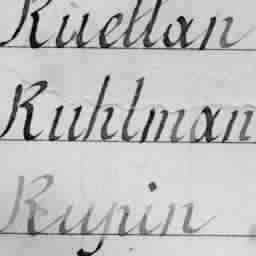 Ruellan
Ruhlman
Rupin